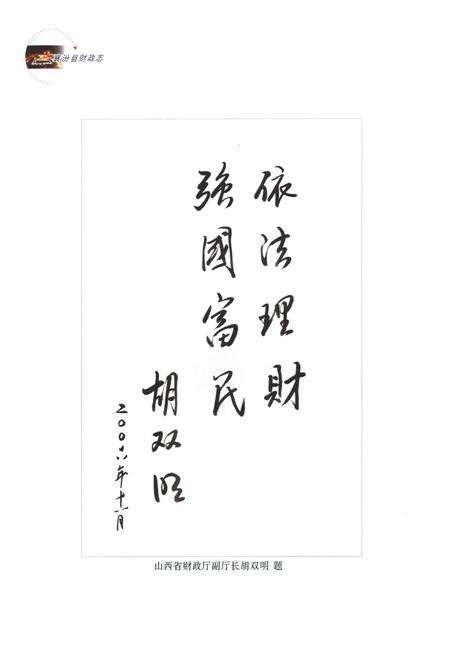 襄汾县财政志
依法理财
強國富民
胡双明
二00六年十一月
山西省财政厅副厅长胡双明 题